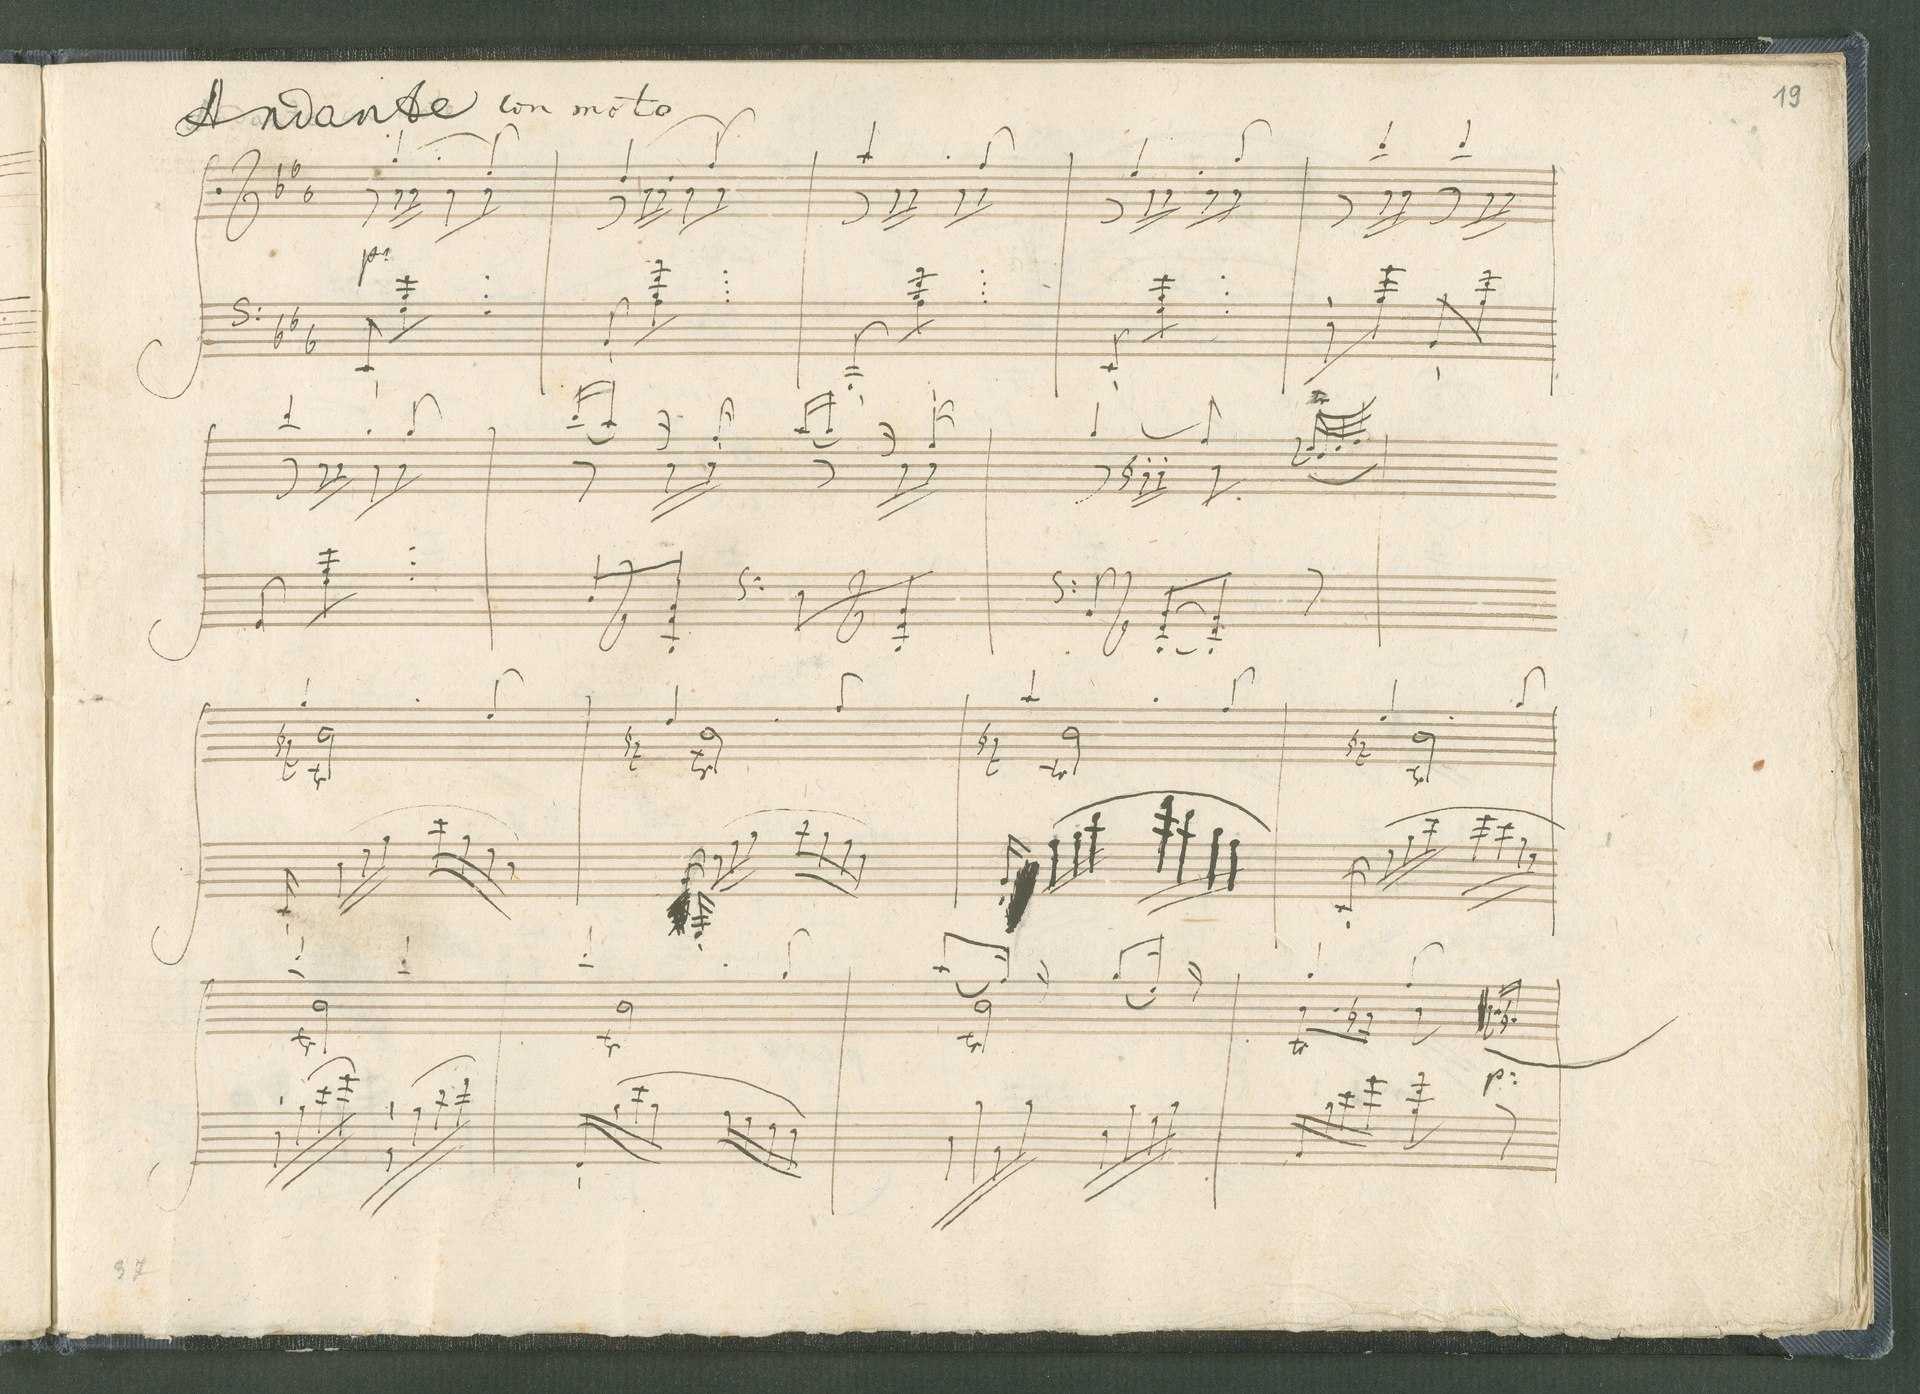 Andante con moto
19
p:
p:
37